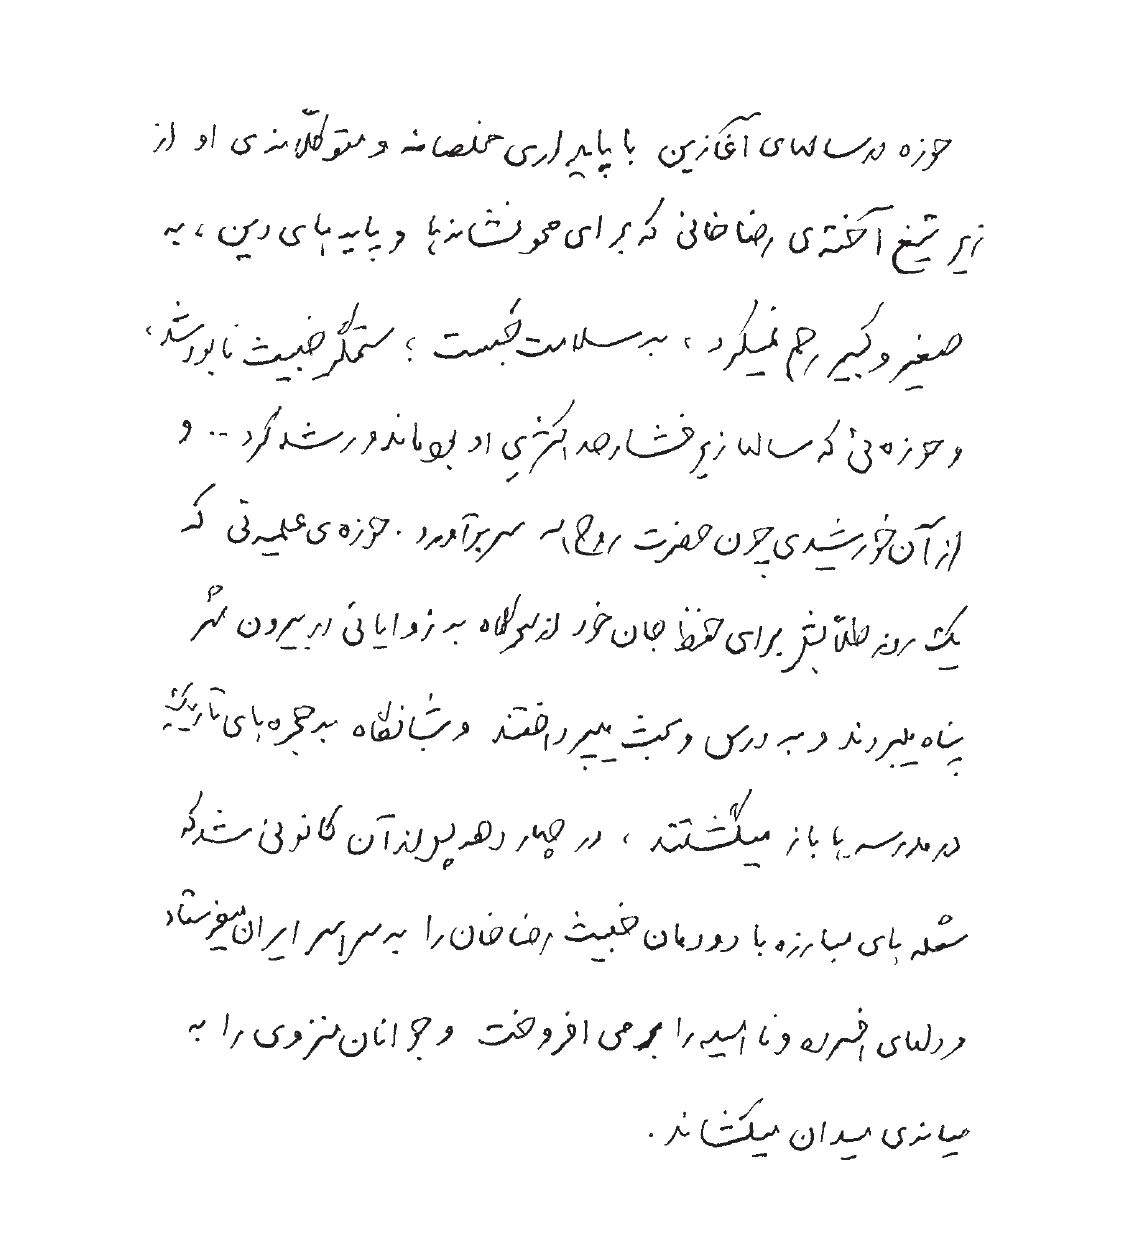 حوزه در سالهای آغازین با پایداری مخلصانه و متوکلّانه‌ی او از
زیر تیغ آخته‌ی رضاخانی که برای محو نشانه‌ها و پایه‌های دین، به
صغیر و کبیر رحم نمیکرد، به سلامت جَست؛ ستمگر خبیث نابود شد،
و حوزه‌ئی که سالها زیر فشار حداکثری او بود ماند و رشد کرد .. و
از آن خورشیدی چون حضرت روح‌الله سر بر آورد. حوزه‌ی علمیه‌ئی که
یک روز طلّابش برای حفظ جان خود از سحرگاه به زوایائی در بیرون شهر
پناه میبردند و به درس و بحث میپرداختند و شبانگاه به حجره‌های تاریکشان
در مدرسه‌ها باز میگشتند، در چهار دهه پس از آن کانونی شد که
شعله‌های مبارزه با دودمان خبیث رضاخان را به سراسر ایران میفرستاد
و دلهای افسرده و ناامید را بر می افروخت و جوانان منزوی را به
میانه‌ی میدان میکشاند.